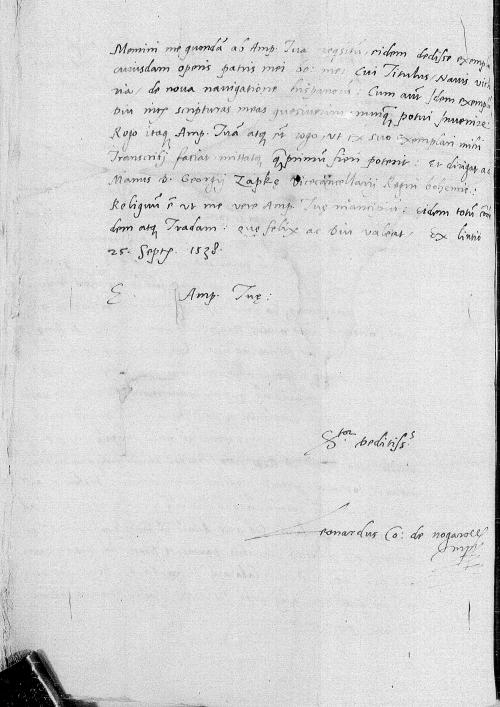 Memini me quondā ab Amp. Tua requisitū, eidem dedisse exempla
cuiusdam operis patris mei cui Titulus, Navis vict
ria, de nova navigatione hispanorū: Cum aūt Idem exempla
Diu inter scripturas meas quesiverim, nunq̃ potui Invenire
Rogo itaq Amp. Tuā atq ēt rogo, ut ex suo exemplari mihi
Transcribi faciat, mittatq q̃ primū fieri poterit: Et dirigat ad
Manus D. Georgij Zapkę Vicecancellarii Regni bohemie:
Reliquū ē ut me vere Amp. Tuę mancipiū: eidem totū
dem atq Tradam: que felix ac Diu valeat. Ex lintio
25. Septē. 1538.
E. Amp. Tuę:
Sʳ. tor deditiss.s
Leonardus Co: de nogarolis
mp